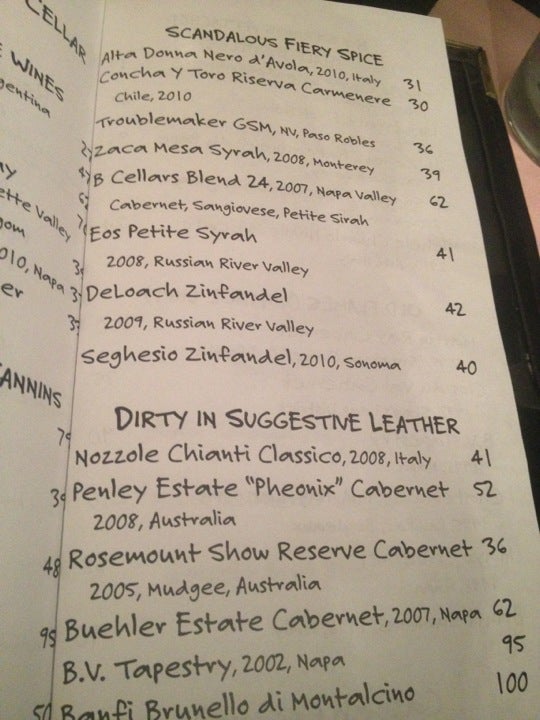 CELLAR
WINES
Argentina
ette Valley
010, Napa
ANNINS
SCANDALOUS FIERY SPICE
Alta Donna Nero d'Avola, 2010, Italy 31
Concha Y Toro Riserva Carmenere 30
Chile, 2010
Troublemaker GSM, NV, Paso Robles 36
Zaca Mesa Syrah, 2008, Monterey 39
B Cellars Blend 24, 2007, Napa Valley 62
Cabernet, Sangiovese, Petite Sirah
Eos Petite Syrah 41
2008, Russian River Valley
DeLoach Zinfandel 42
2009, Russian River Valley
Seghesio Zinfandel, 2010, Sonoma 40
DIRTY IN SUGGESTIVE LEATHER
Nozzole Chianti Classico, 2008, Italy 41
Penley Estate "Pheonix" Cabernet 52
2008, Australia
Rosemount Show Reserve Cabernet 36
2005, Mudgee, Australia
Buehler Estate Cabernet, 2007, Napa 62
B.V. Tapestry, 2002, Napa 95
Banfi Brunello di Montalcino 100